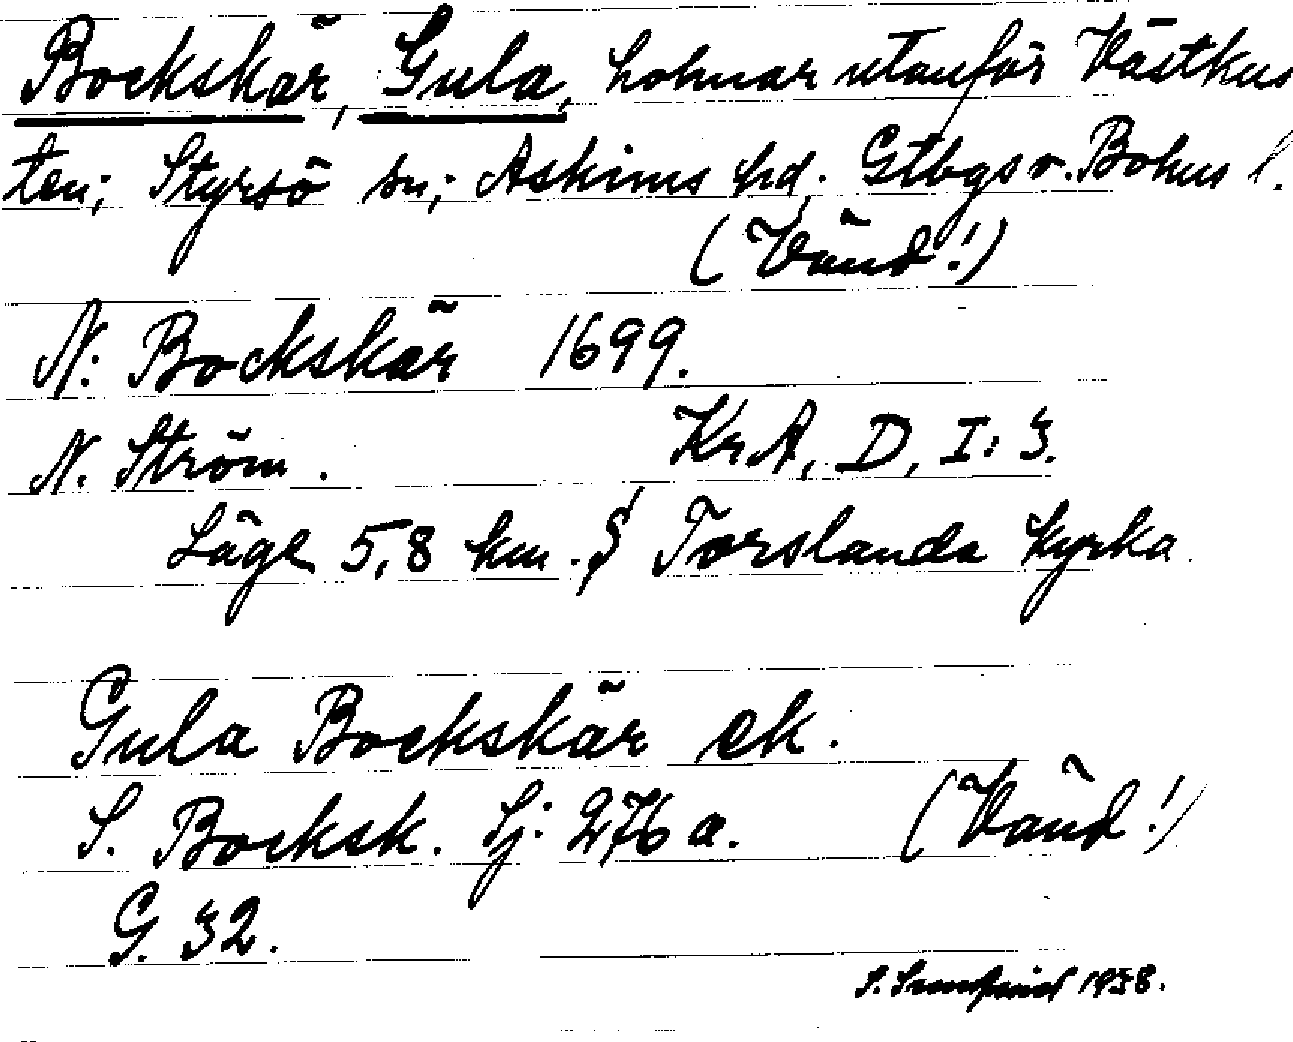 Bockskär, Gula, holmar utanför Västkus
ten; Styrsö sn; Askims hd. Gtbgs o. Bohus l.
(Vänd!)
N: Bockskär 1699.
N. Ström. KrA, D, I: 3.
Läge 5,8 km. S Torslanda kyrka.
Gula Bockskär ek.
S. Bocksk. Sj: 276 a. (Vänd!)
G. 32.
S. 1938.